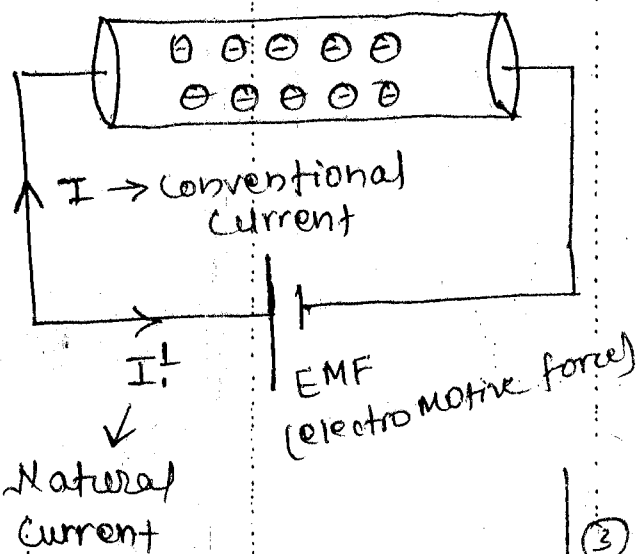 ⊖ ⊖ ⊖ ⊖ ⊖
⊖ ⊖ ⊖ ⊖ ⊖
I → Conventional
Current
I!
EMF
(electro Motive force)
Natural
Current
3